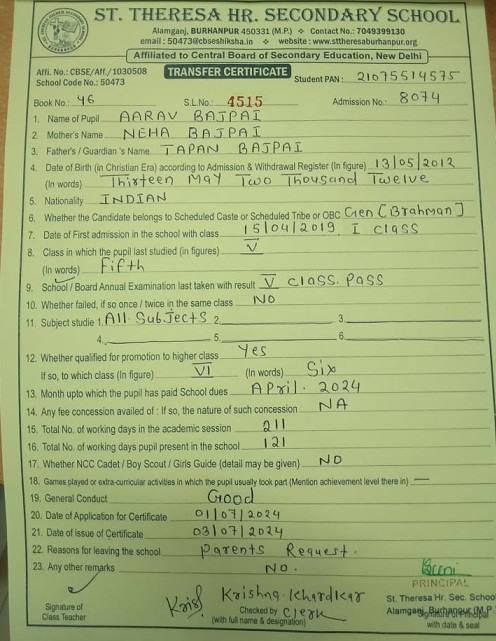 ST. THERESA HR. SECONDARY SCHOOL
Alamganj, BURHANPUR 450331 (M.P.) ❖ Contact No.: 7049399130
email : 50473@cbseshiksha.in ❖ website : www.sttheresaburhanpur.org
Affiliated to Central Board of Secondary Education, New Delhi
Affi. No.: CBSE/Aff./1030508 TRANSFER CERTIFICATE
School Code No.: 50473 Student PAN : 21075514575
Book No.: 46 S.L.No.: 4515 Admission No.: 8074
1. Name of Pupil AARAV BAJPAI
2. Mother's Name NEHA BAJPAI
3. Father's / Guardian 's Name TAPAN BAJPAI
4. Date of Birth (in Christian Era) according to Admission & Withdrawal Register (In figure) 13/05/2012
(In words) Thirteen May Two Thousand Twelve
5. Nationality INDIAN
6. Whether the Candidate belongs to Scheduled Caste or Scheduled Tribe or OBC Gen [Brahman]
7. Date of First admission in the school with class 15/04/2019, I class
8. Class in which the pupil last studied (in figures) V
(In words) Fifth
9. School / Board Annual Examination last taken with result V class. Pass
10. Whether failed, if so once / twice in the same class NO
11. Subject studie 1. All Subjects 2. 3.
4. 5. 6.
12. Whether qualified for promotion to higher class Yes
If so, to which class (In figure) VI (In words) Six
13. Month upto which the pupil has paid School dues April. 2024
14. Any fee concession availed of : If so, the nature of such concession NA
15. Total No. of working days in the academic session 211
16. Total No. of working days pupil present in the school 121
17. Whether NCC Cadet / Boy Scout / Girls Guide (detail may be given) NO
18. Games played or extra-curricular activities in which the pupil usually took part (Mention achievement level there in) —
19. General Conduct Good
20. Date of Application for Certificate 01/07/2024
21. Date of issue of Certificate 03/07/2024
22. Reasons for leaving the school Parents Request.
23. Any other remarks NO.
PRINCIPAL
Krishna Khardkar
St. Theresa Hr. Sec. School
Signature of Checked by Clerk Alamganj, Burhanpur (M.P.)
Class Teacher (with full name & designation) Signature of Principal
with date & seal